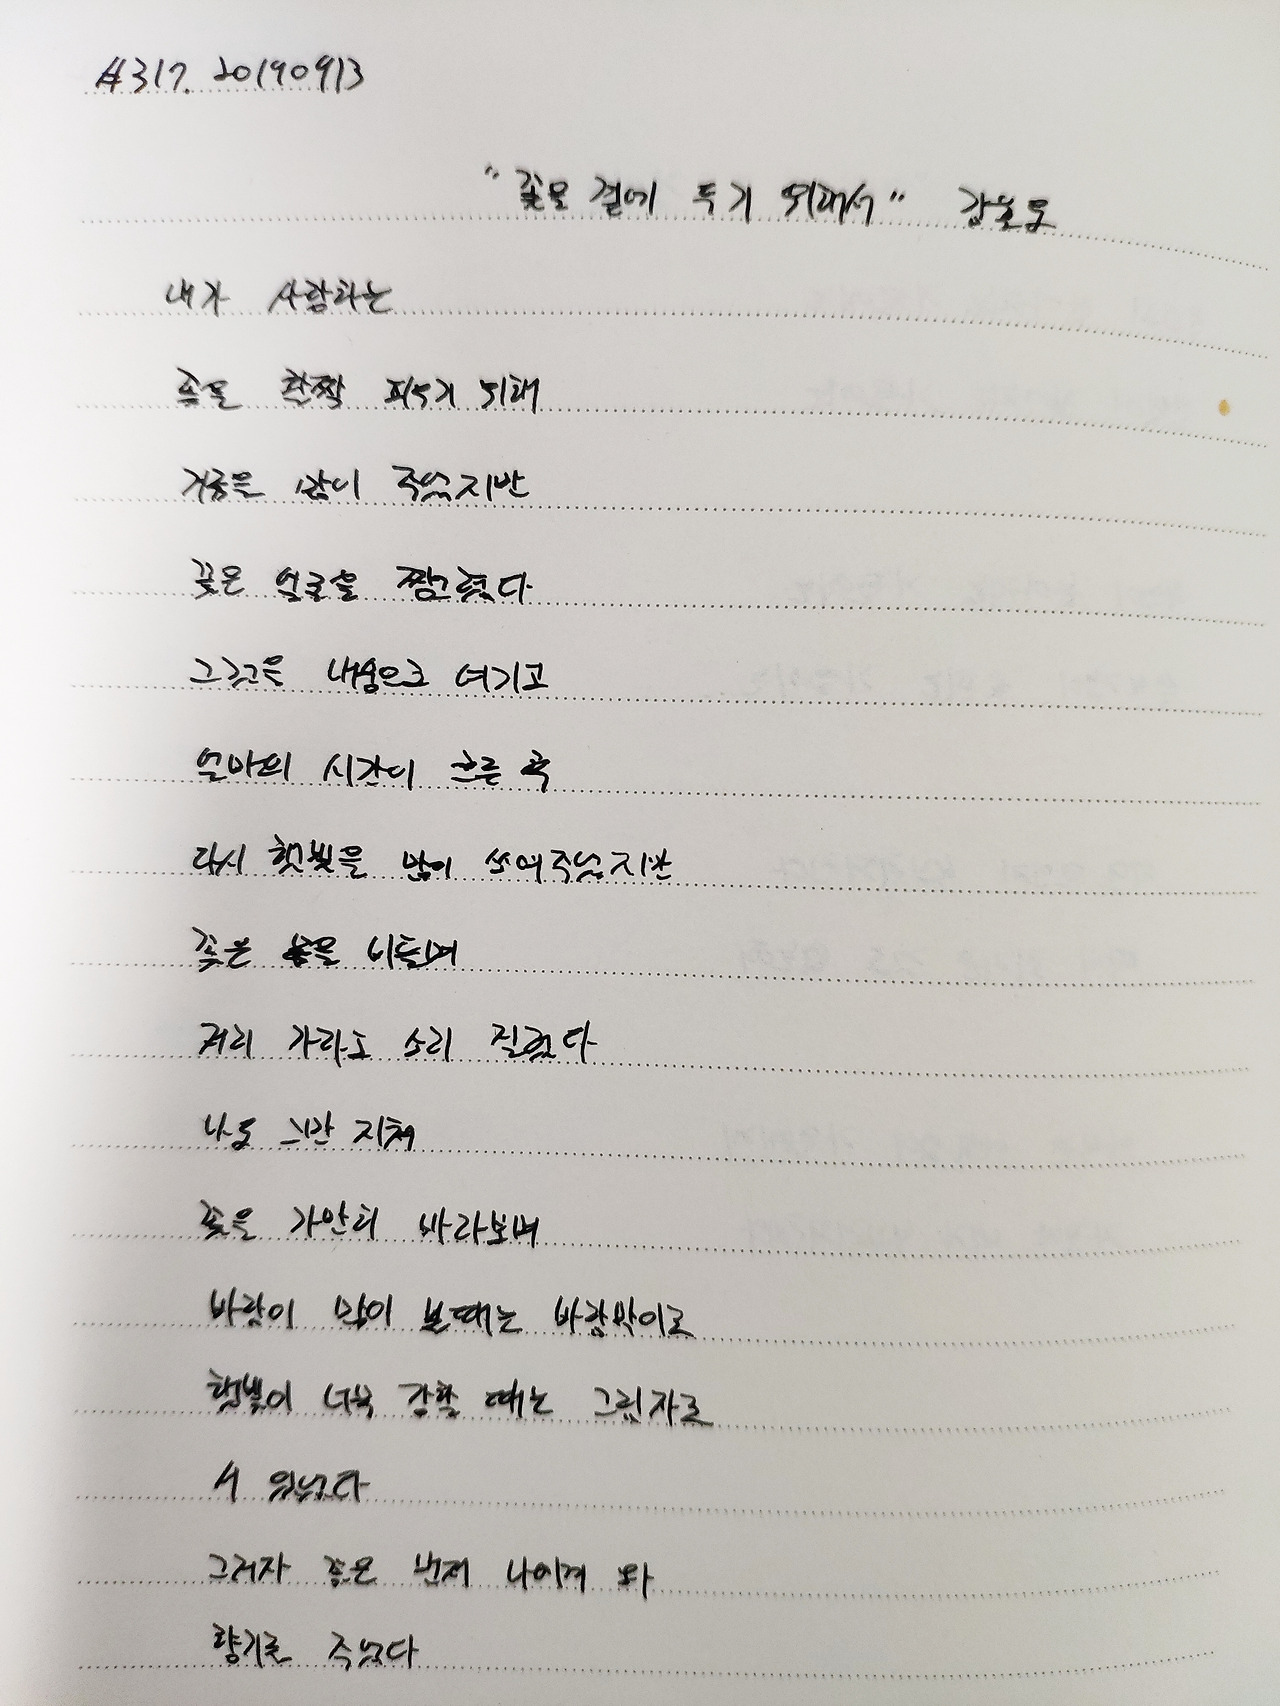 #317. 20190913
"꽃을 곁에 두기 위해서" 강원석
내가 사랑하는
꽃을 활짝 피우기 위해
거름을 많이 주었지만
꽃은 얼굴을 찡그렸다
그러고는 내심으로 여기고
얼마의 시간이 흐른 후
다시 햇빛을 많이 쏘여주었지만
꽃은 몸을 비틀며
저리 가라고 소리 질렀다
나도 그만 지쳐
꽃을 가만히 바라보며
바람이 많이 불때는 바람막이로
햇빛이 너무 강할 때는 그림자로
서 있었다
그러자 꽃은 먼저 나에게 와
향기를 주었다